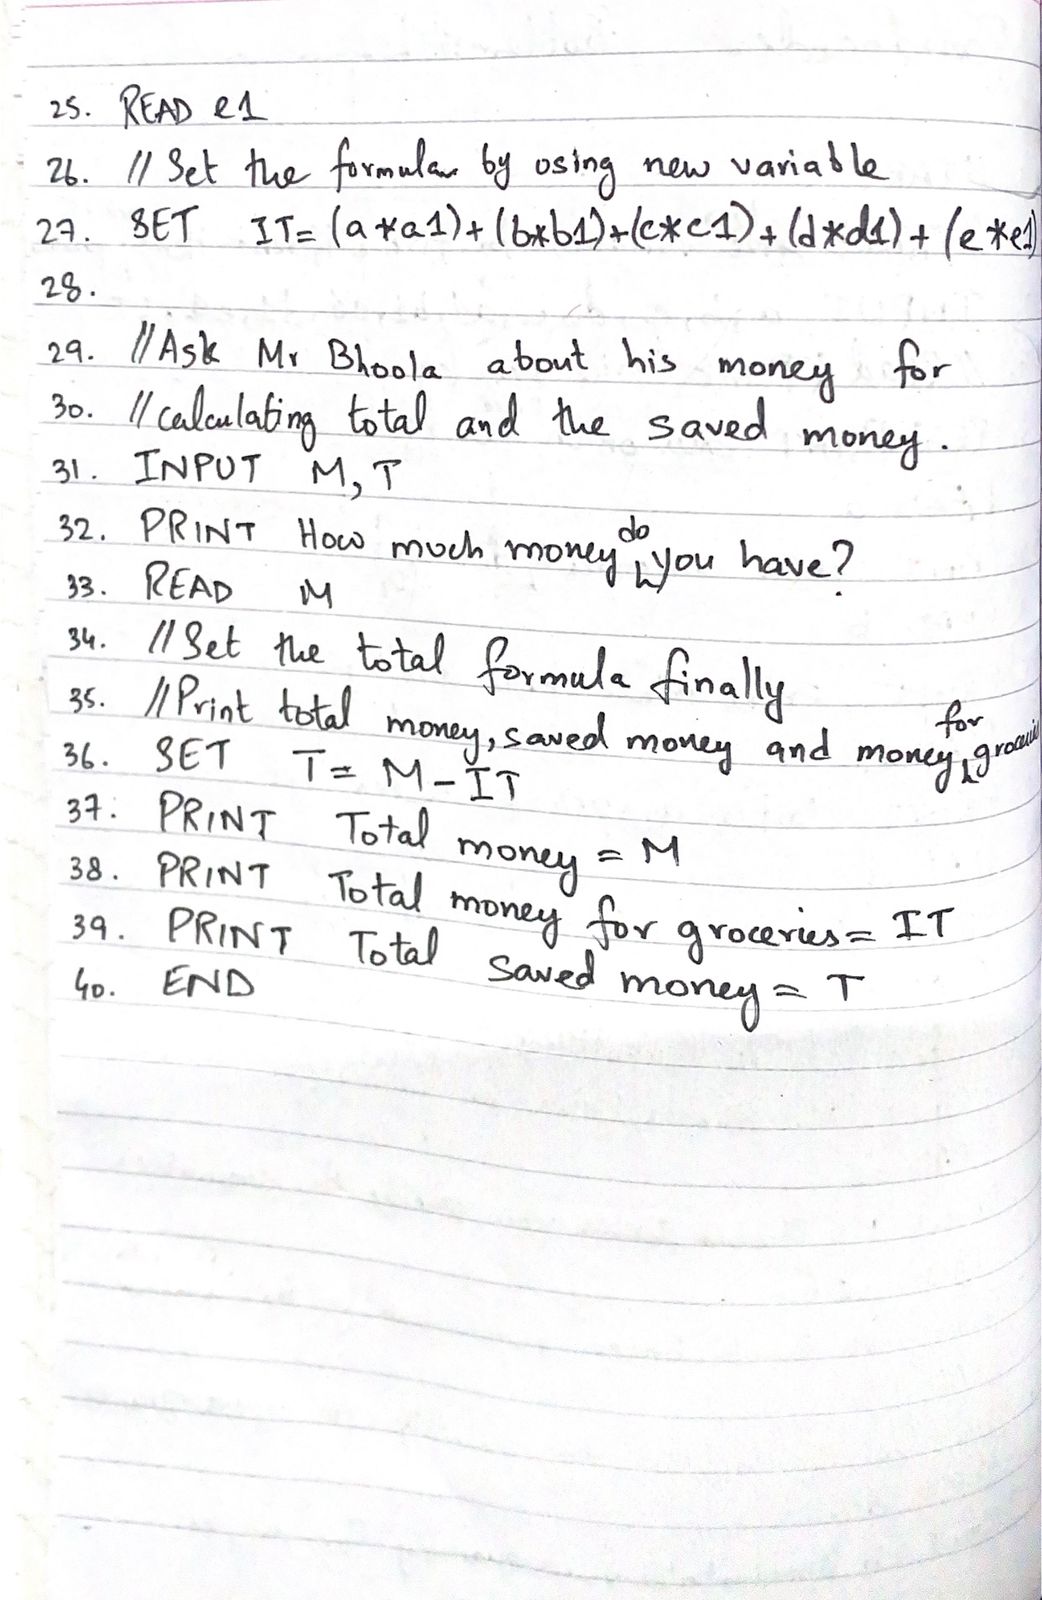 25. READ e1
26. // Set the formula by using new variable
27. SET IT= (a*a1)+(b*b1)+(c*c1)+(d*d1)+(e*e1)
28.
29. //Ask Mr Bhoola about his money for
30. //calculating total and the saved money.
31. INPUT M, T
32. PRINT How much money do you have?
33. READ M
34. //Set the total formula finally
35. //Print total money, saved money and money for
36. SET T= M-IT
37. PRINT Total money = M
38. PRINT Total money for groceries= IT
39. PRINT Total saved money= T
40. END